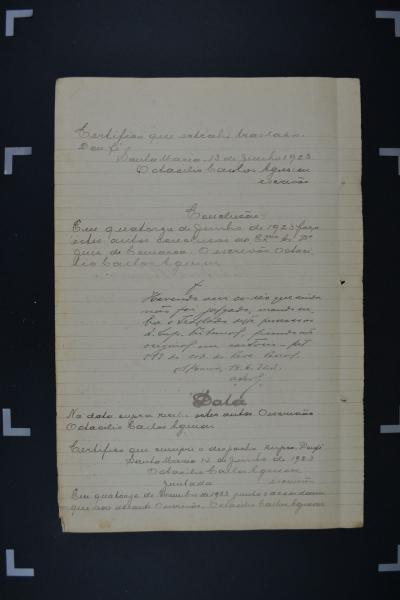 Certifico que extrahi traslado.
Dou fé.
Santa Maria, 13 de Junho 1923
Octacilio Carlos Aguiar
escrivão
Conclusão
Em quatorze de Junho de 1923 faço
estes autos conclusos ao Exmo Sr. Dr
Juiz da Comarca. O escrivão Octaci-
lio Carlos Aguiar
Havendo um co-réo que ainda
não foi julgado, mande-se
o traslado
original em cartorio - art
do Cod. do Proc. Penal.
Data
Na data supra recebi estes autos. O escrivão
Octacilio Carlos Aguiar
Certifico que cumpri o despacho supra. Dou fé
Santa Maria 14 de Junho de 1923
Octacilio Carlos Aguiar
Juntada escrivão
Em quatorze de Novembro de 1923 junto o accordam
que se segue. O escrivão, Octacilio Carlos Aguiar